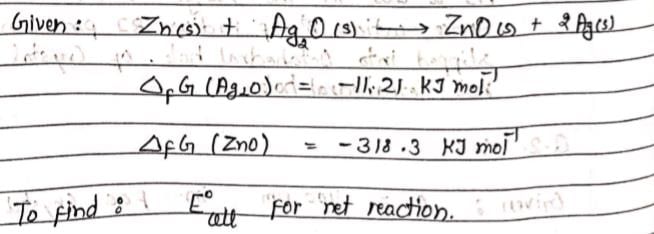 Given : Zn(s) + Ag₂O (s) → ZnO (s) + 2 Ag(s)
ΔfG (Ag₂O) = -11.21 kJ mol⁻¹
ΔfG (ZnO) = -318.3 kJ mol⁻¹
To find : E°cell for net reaction.